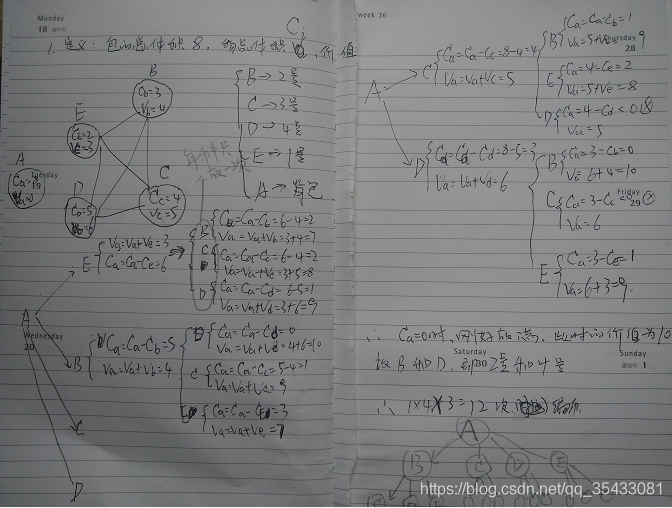 Monday
18
Ci
1.定义：包的总体积8，物总体积Ci，价值
B
Cb=3
Vb=4
E
Ce=2
Ve=3
A
Ca=8
Va=0
D
Cd=5
Vd=6
C
Cc=4
Vc=5
B→2号
C→3号
D→4号
E→1号
A→背包
E
Va=Va+Ve=3
Ca=Ca-Ce=6
B
Ca=Ca-Cb=6-4=2
Va=Va+Vb=3+4=7
C
Ca=Ca-Cc=6-4=2
Va=Va+Ve=3+5=8
D
Ca=Ca-Cd=6-5=1
Va=Va+Vd=3+6=9
A
Wednesday
20
B
Ca=Ca-Cb=5
Va=Va+Vb=4
D
Ca=Ca-Cd=0
Va=Va+Vd=4+6=10
C
Ca=Ca-Cc=5-4=1
Va=Va+Ve=9
E
Ca=Ca-Ce=3
Va=Va+Ve=7
C
D
week 26
Thursday
28
A
C
Ca=Ca-Cc=8-4=4
Va=Va+Vc=5
B
Ca=Ca-Cb=1
Va=5+4=9
E
Ca=4-Ce=2
Va=5+Ve=8
D
Ca=4-Cd<0
Va=5
D
Ca=Ca-Cd=8-5=3
Va=Va+Vd=6
B
Ca=3-Cb=0
Va=6+4=10
Friday
29
C
Ca=3-Cc<0
Va=6
E
Ca=3-Ce=1
Va=6+3=9
∴ Ca=0时，刚好放满，此时的价值为10
故B和D，即2号和4号
Saturday
30
Sunday
1
∴ 1×4×3=12次
A
B
C
D
E
https://blog.csdn.net/qq_35433081